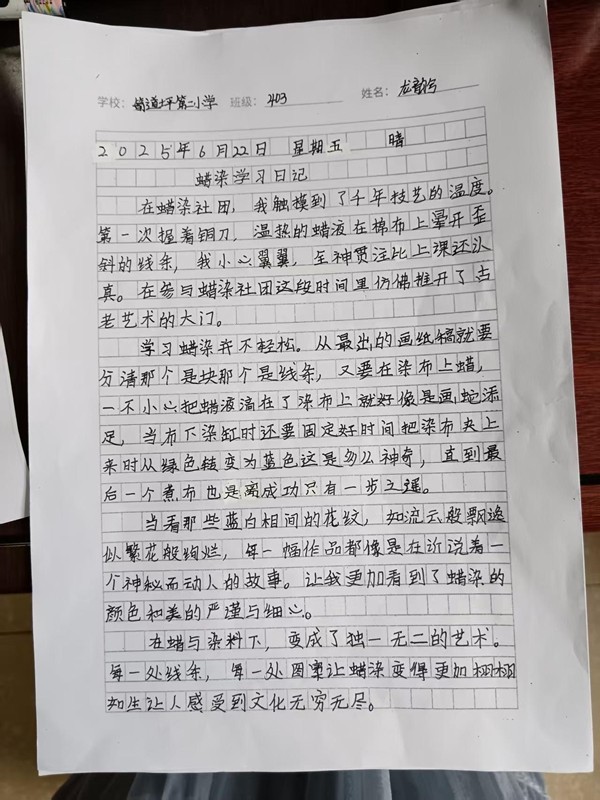 学校：道坪第二小学 班级：403 姓名：龙
2025年6月22日 星期五 晴
蜡染学习日记
在蜡染社团，我触摸到了千年技艺的温度。
第一次握着铜刀，温热的蜡液在棉布上晕开歪
斜的线条，我小心翼翼，全神贯注比上课还认
真。在参与蜡染社团这段时间里仿佛推开了古
老艺术的大门。
学习蜡染并不轻松。从最出的画纸稿就要
分清那个是块那个是线条，又要在染布上蜡，
一不小心把蜡液滴在了染布上就好像是画蛇添
足，当布下染缸时还要固定好时间把染布夹上
来时从绿色转变为蓝色这是多么神奇，直到最
后一个煮布也是离成功只有一步之遥。
当看那些蓝白相间的花纹，如流云般飘逸
似繁花般绚烂，每一幅作品都像是在诉说着一
个神秘而动人的故事。让我更加看到了蜡染的
颜色和美的严谨与细心。
在蜡与染料下，变成了独一无二的艺术。
每一处线条，每一处图案让蜡染变得更加栩栩
如生让人感受到文化无穷无尽。